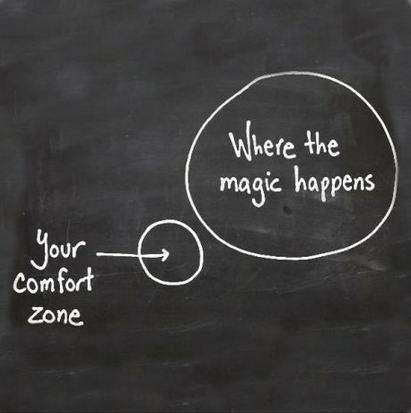 Where the
magic happens
your
comfort
zone